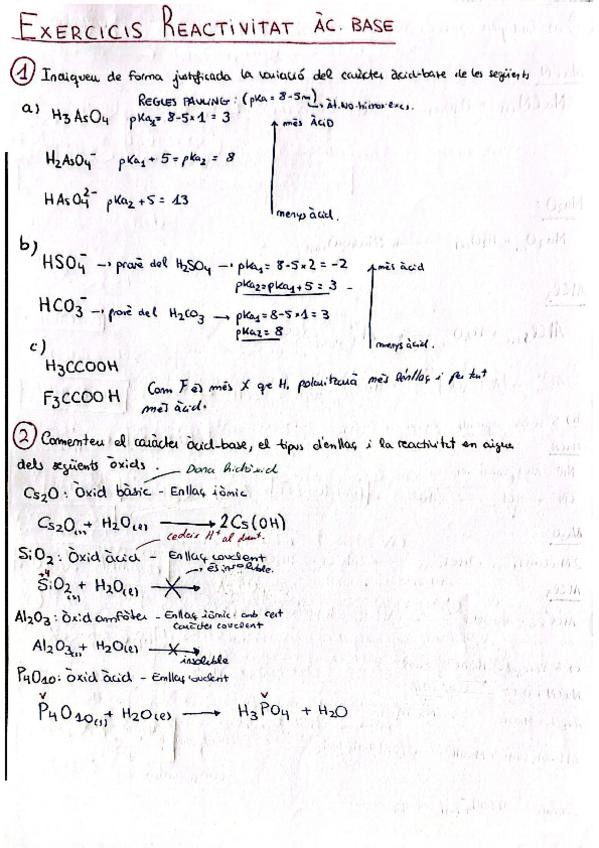 EXERCICIS REACTIVITAT ÀC. BASE
① Indiqueu de forma justificada la variació del caràcter àcid-base de les següents
REGLES PAULING: (pKa = 8-5m) → àt. No. hidrogenats.
a) H₃AsO₄ pKa₁= 8-5×1 = 3
més ÀCID
H₂AsO₄⁻ pKa₁ + 5 = pKa₂ = 8
HAsO₄²⁻ pKa₂ + 5 = 13
menys àcid.
b) HSO₄⁻ → prové del H₂SO₄ → pKa₁ = 8-5×2 = -2
més àcid
pKa₂=pKa₁+5 = 3
HCO₃⁻ → prové del H₂CO₃ → pKa₁=8-5×1 = 3
pKa₂= 8
menys àcid.
c)
H₃CCOOH
F₃CCOOH
Com F és més X que H, polaritzarà més l'enllaç i per tant
més àcid.
② Comenteu el caràcter àcid-base, el tipus d'enllaç i la reactivitat en aigua
dels següents òxids.
Dona hidròxid
Cs₂O: Òxid bàsic - Enllaç iònic
Cs₂O(s) + H₂O(l) ⟶ 2Cs(OH)
cedeix H⁺ al
SiO₂: Òxid àcid - Enllaç covalent
→ És insoluble.
+4
SiO₂(s) + H₂O(l) ⟶
Al₂O₃: Òxid amfòter - Enllaç iònic amb cert
caràcter covalent
Al₂O₃(s) + H₂O(l) ⟶
insoluble
P₄O₁₀: Òxid àcid - Enllaç covalent
V V
P₄O₁₀(s) + H₂O(l) ⟶ H₃PO₄ + H₂O